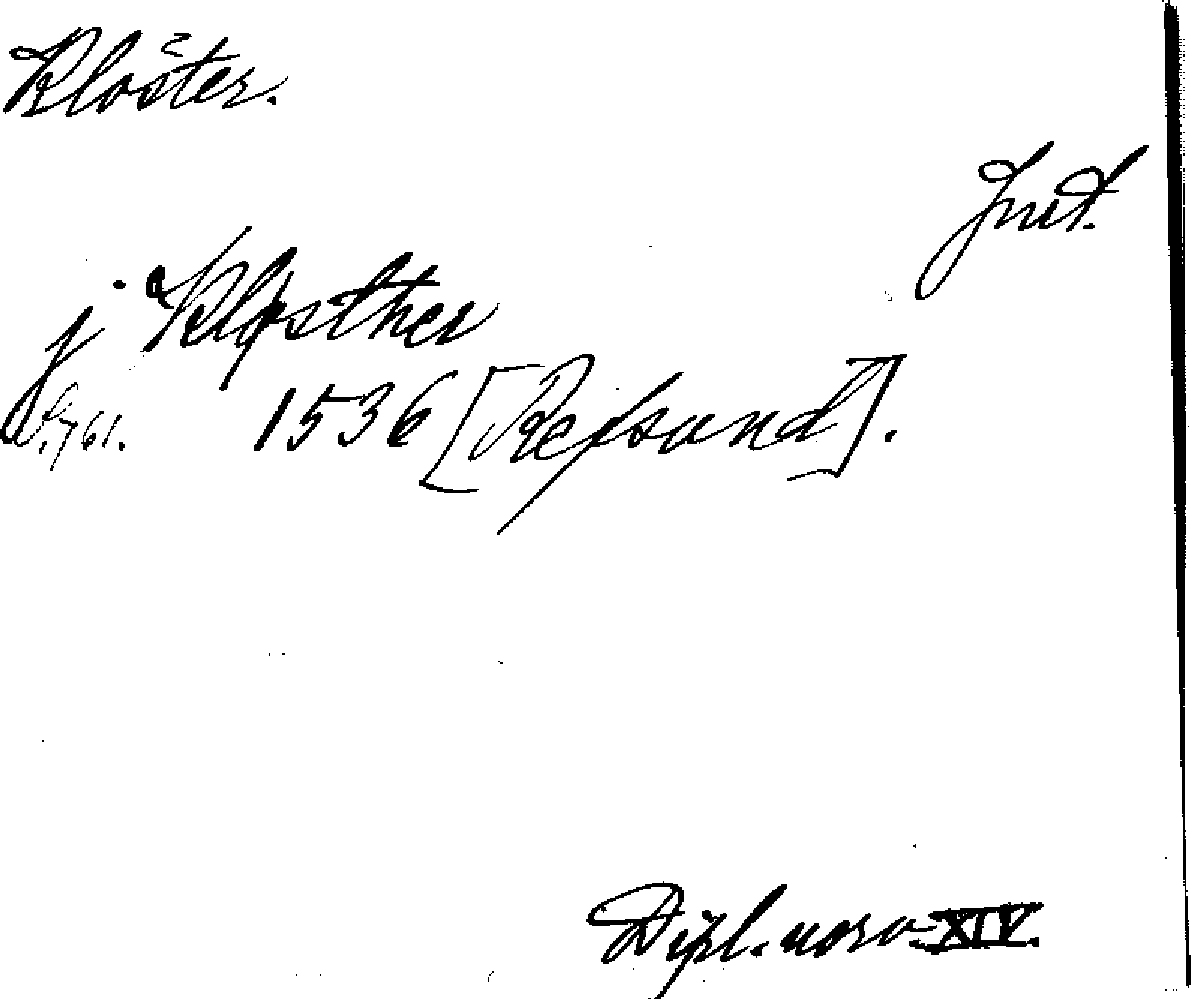 Klöster.
Jmt.
j Kløsther
S. 761. 1536 [Refsund].
Dipl. norv. XIV.